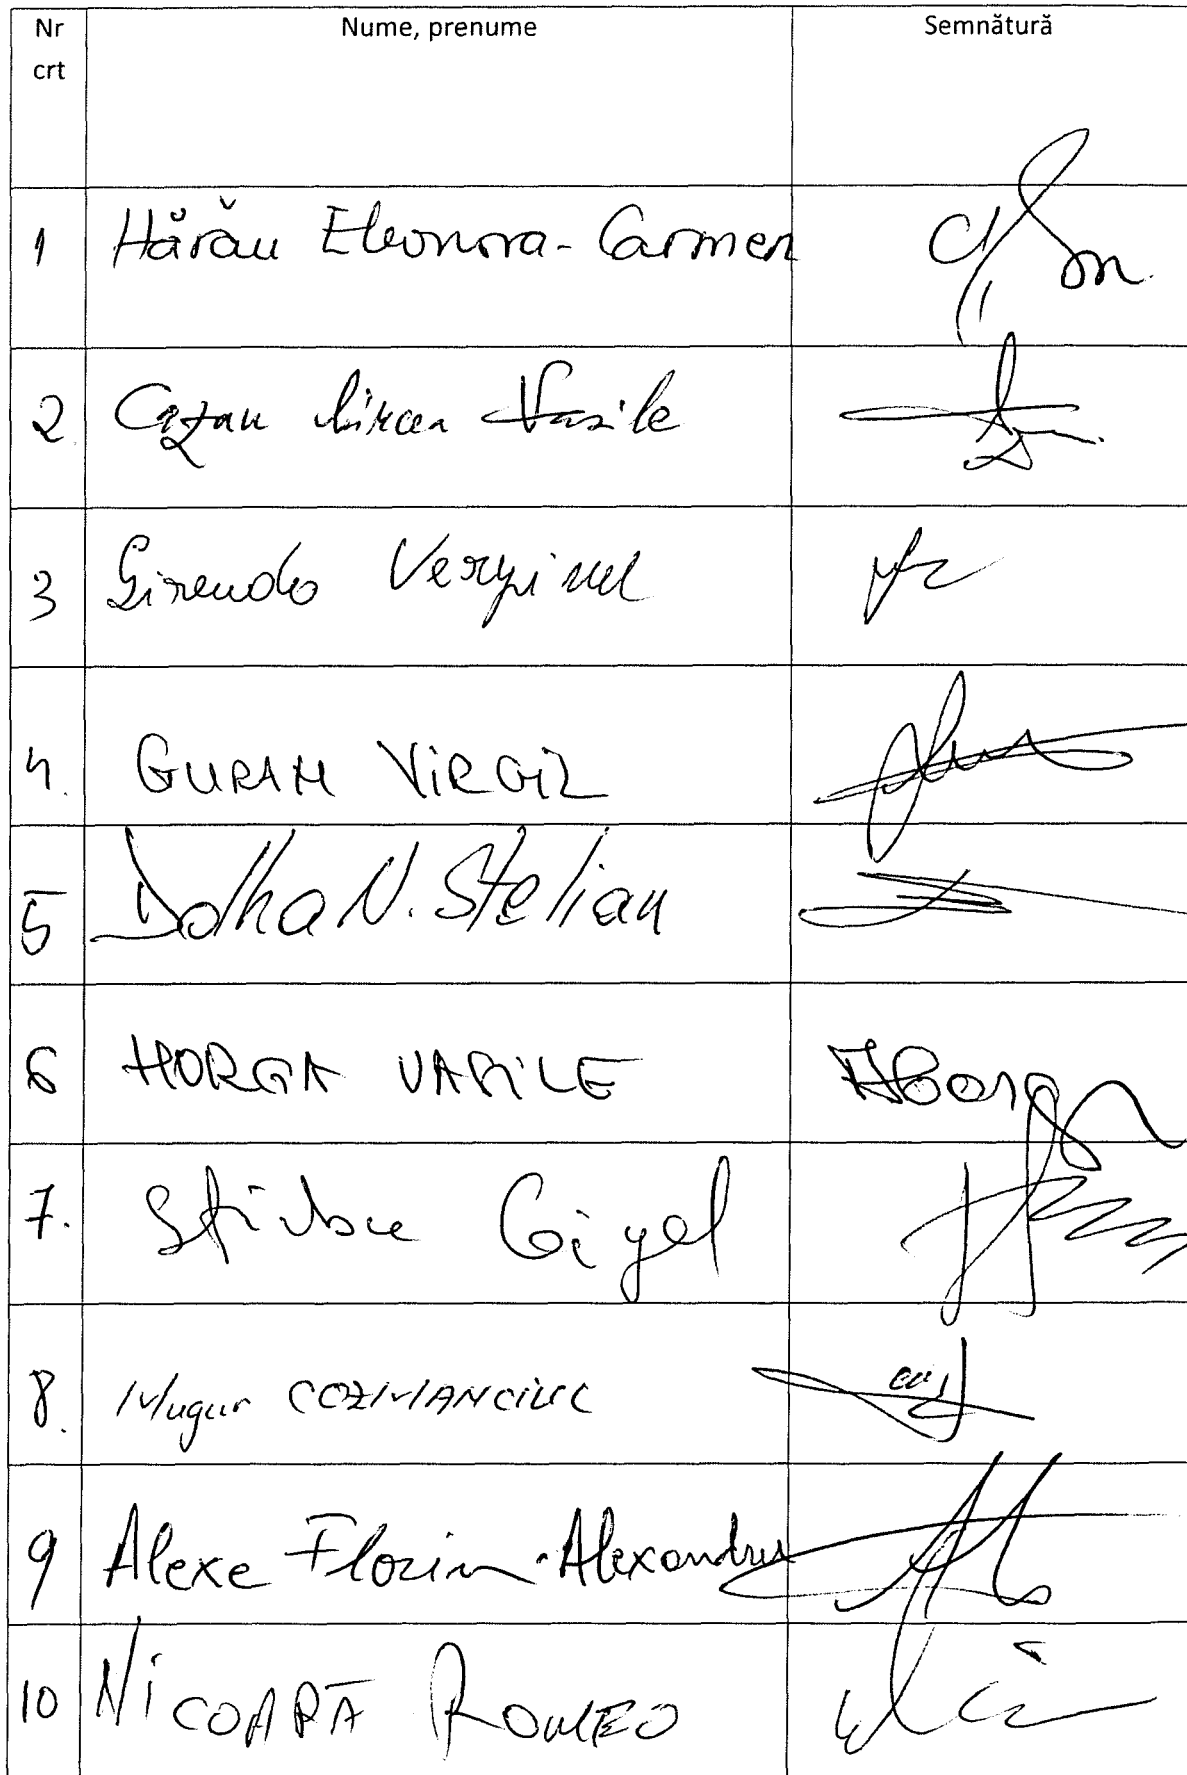 Nr crt Nume, prenume Semnătură
1 Hărău Eleonora-Carmen
2. Cazan Mircea Vasile
3 Sirendo Verginel
4. GURAN VIRGIL
5 Dolha N. Stelian
6 HORGA VASILE Horga
7. Stirbu Gigel
8. Mugur COZMANCIUC
9 Alexe Florin-Alexandru
10 NICOARĂ ROMEO